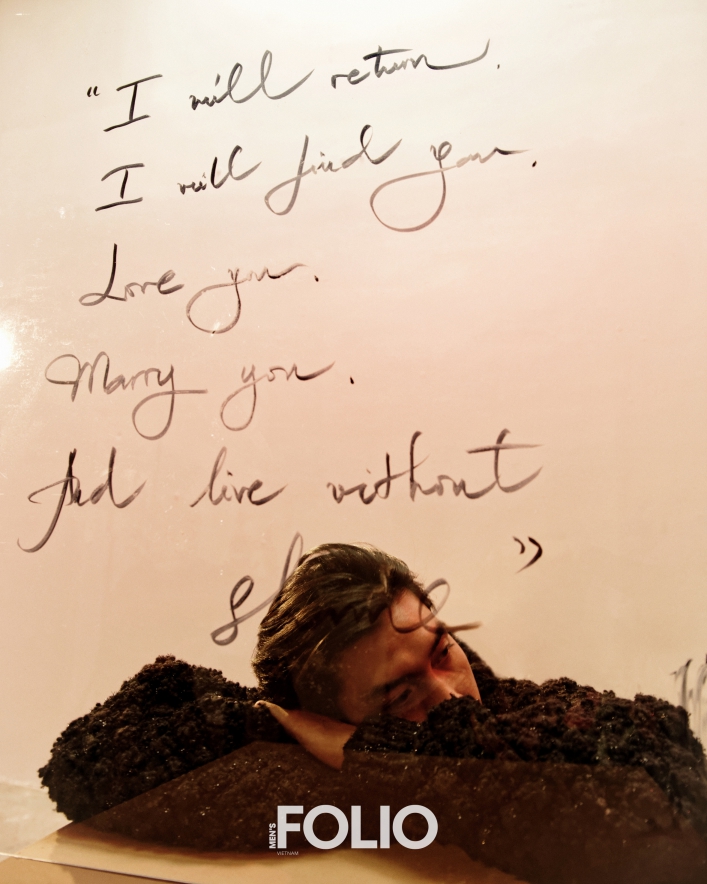 “I will return.
I will find you.
Love you.
Marry you.
And live without
”
MEN'S FOLIO
VIETNAM